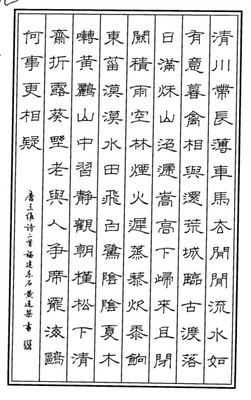 清川帶長薄車馬去閒閒流水如
有意暮禽相與還荒城臨古渡落
日滿秌山迢遞嵩高下歸來且閉
關積雨空林煙火遲蒸藜炊黍餉
東菑漠漠水田飛白鷺陰陰夏木
囀黃鸝山中習靜觀朝槿松下清
齋折露葵埜老與人爭席罷海鷗
何事更相疑
唐王維詩二首福建東石黃連榮書